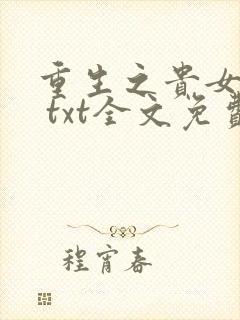 重生之貴女
txt全文免費
程宵春